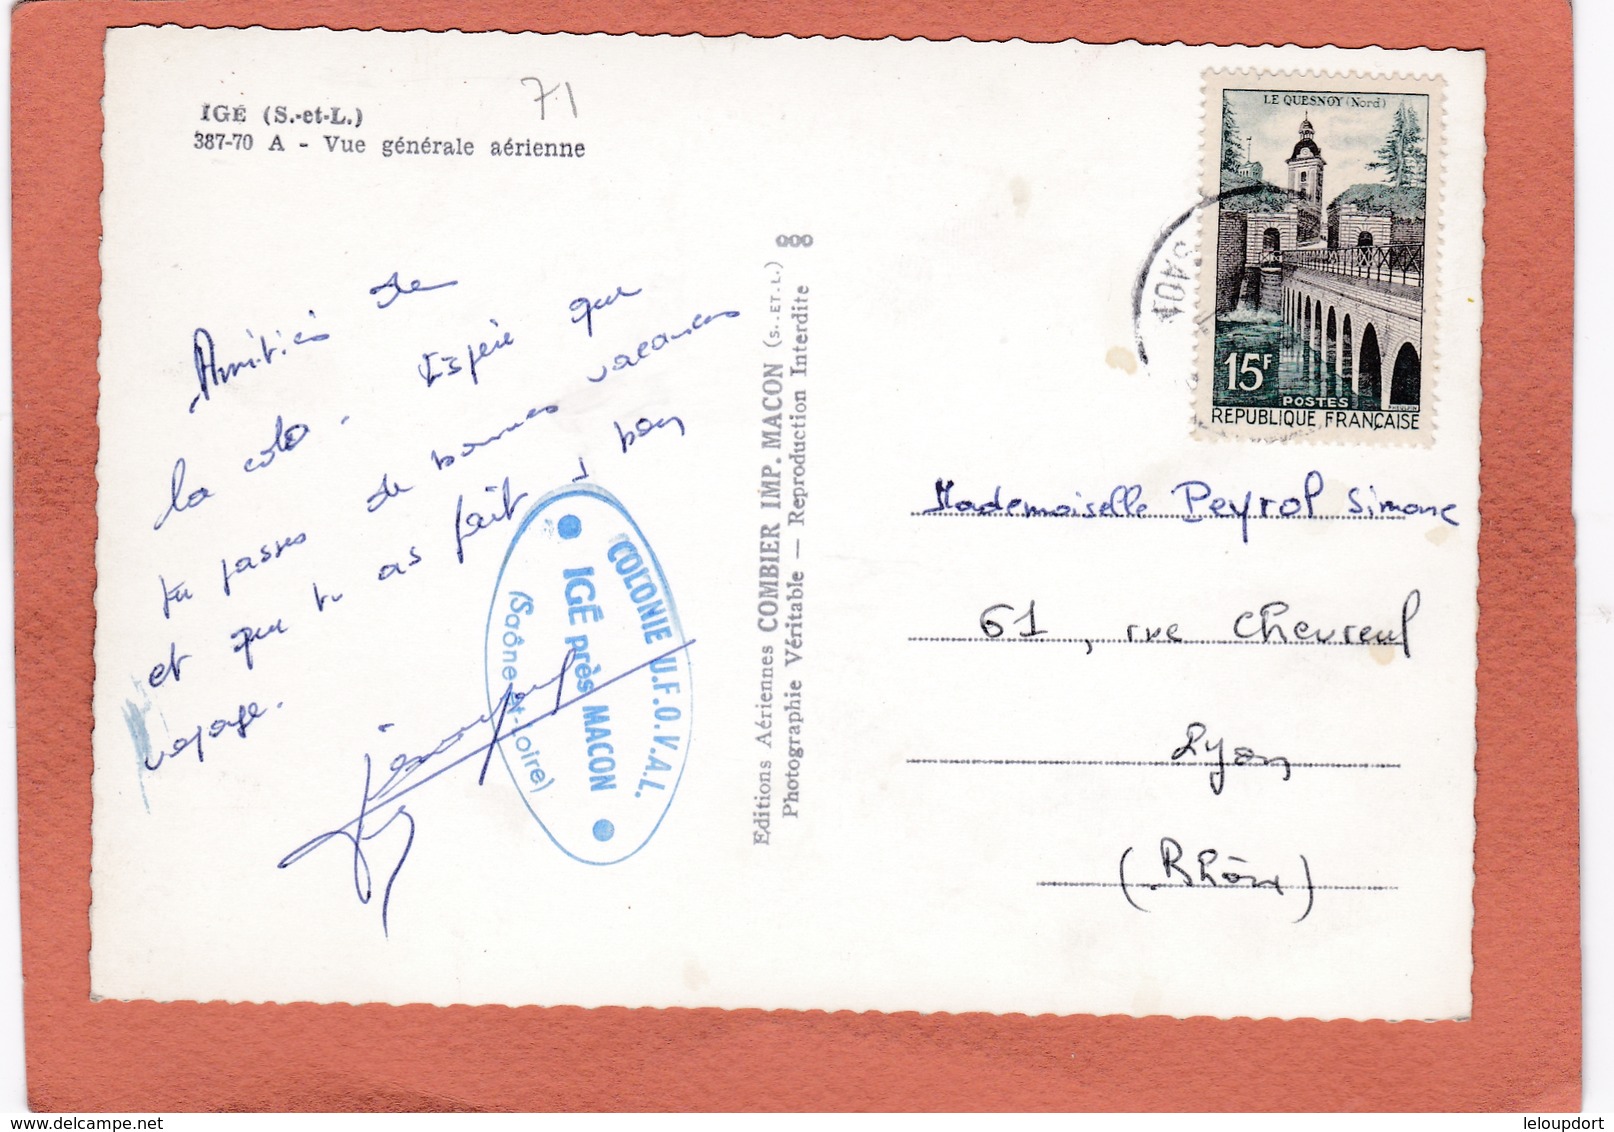 IGÉ (S.-et-L.)
387-70 A - Vue générale aérienne
71
Amitiés de
la colo. Espère que
tu passes de bonnes vacances
et que tu as fait 1 bon
voyage.
COLONIE U.F.O.V.A.L.
IGÉ près MACON
(Saône-et-Loire)
Editions Aériennes COMBIER IMP. MACON (S.-ET-L.)
Photographie Véritable — Reproduction Interdite
LE QUESNOY (Nord)
15F
POSTES
REPUBLIQUE FRANÇAISE
Mademoiselle Peyrol Simone
61, rue Chevreul
Lyon
(Rhône)
www.delcampe.net
leloupdort